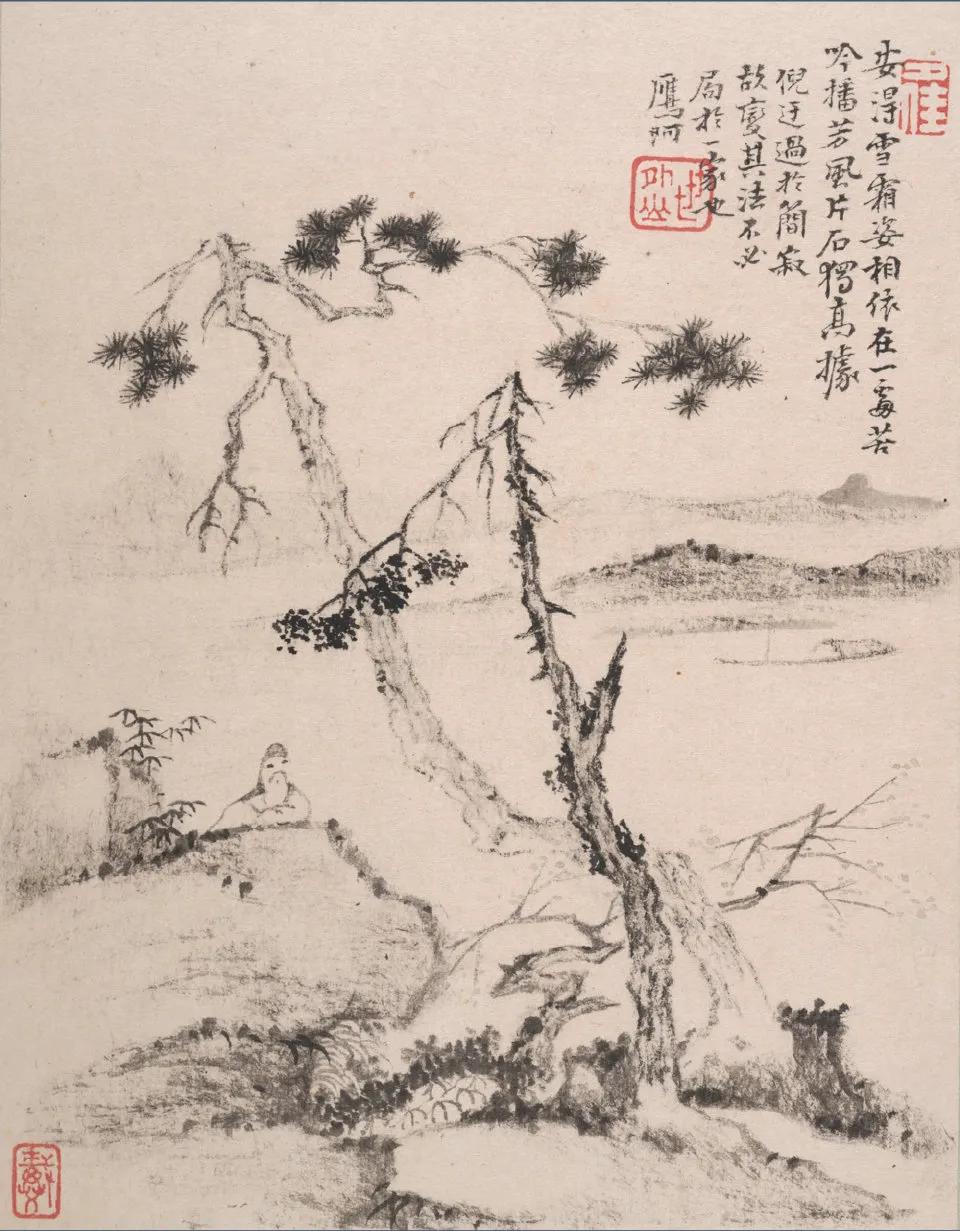 安得雪霜姿相依在一處苦
吟播芳風片石獨高據
倪迂過於簡寂
故變其法不必
局於一家也
鷹阿